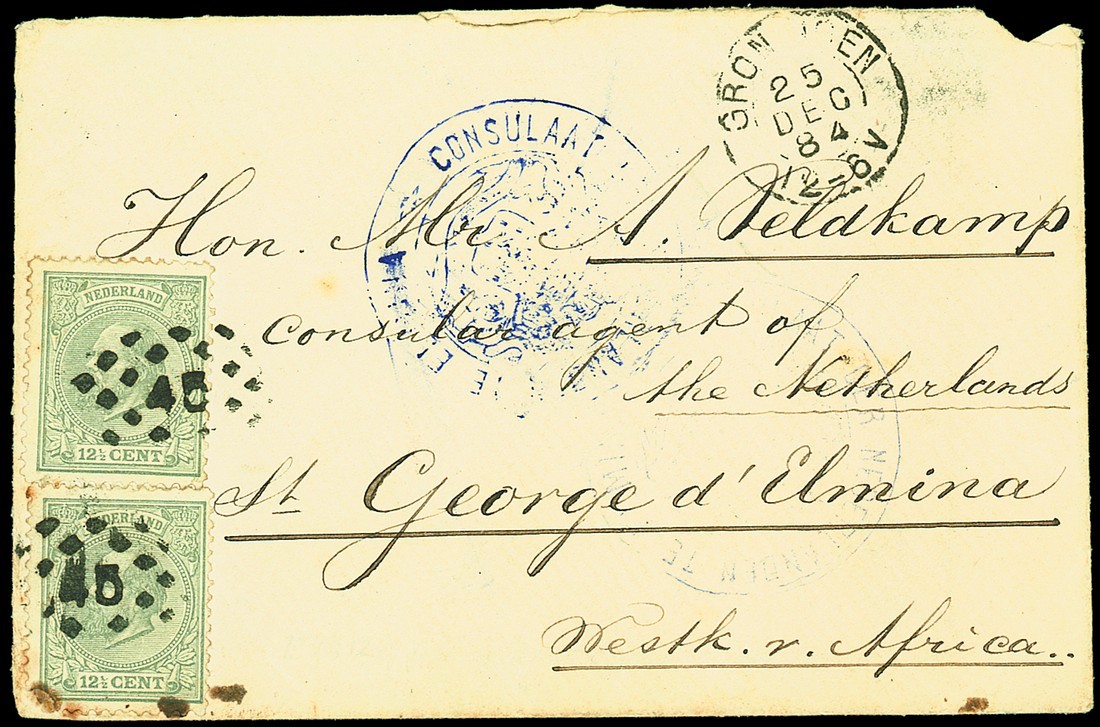 GRON GEN
25
DEC
84
12-6V
CONSULAAT
Hon. Mr A. Veldkamp
consular agent of
the Netherlands
St George d'Elmina
Westk. v. Africa..
NEDERLAND
45
12½ CENT
NEDERLAND
45
12½ CENT